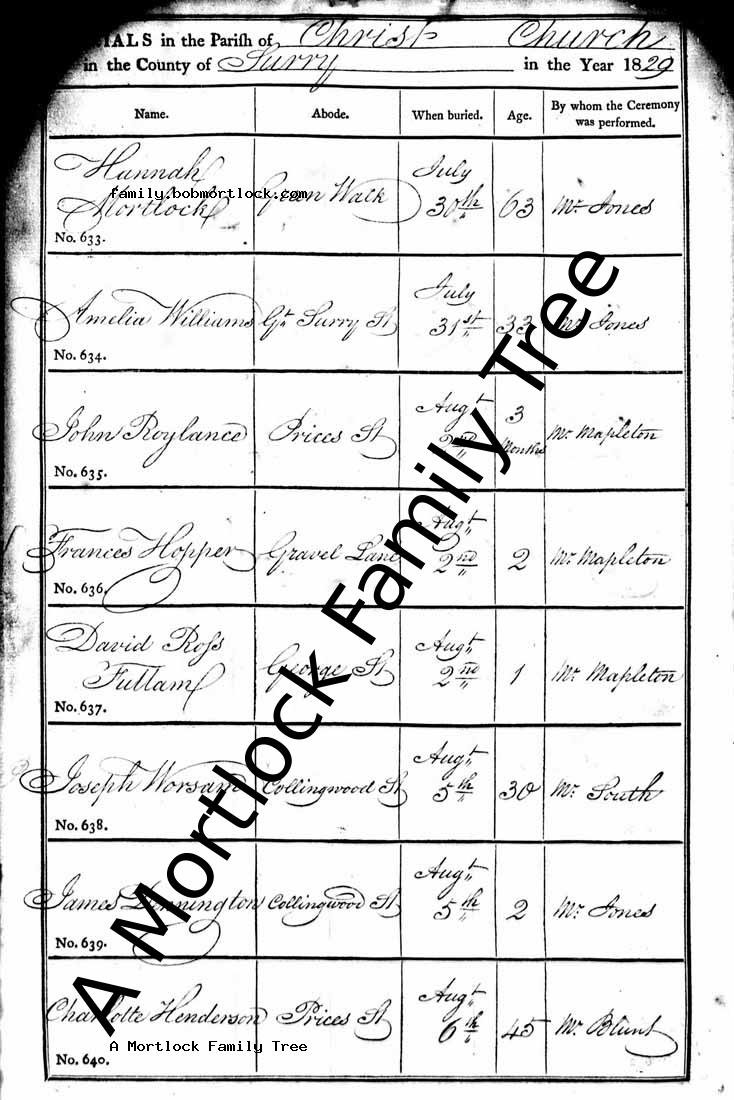 IALS in the Parish of Christ Church
in the County of Surry in the Year 1829
Name. Abode. When buried. Age. By whom the Ceremony was performed.
Hannah Mortlock Green Walk July 30th 63 Mr Jones
family.bobmortlock.com
No. 633.
Amelia Williams Gt Surry St July 31st 33 Mr Jones
No. 634.
John Roylance Prices St Augt 2nd 3 Months Mr Mapleton
No. 635.
Frances Hopper Gravel Lane Augt 2nd 2 Mr Mapleton
No. 636.
David Ross Fullam George St Augt 2nd 1 Mr Mapleton
No. 637.
Joseph Worsam Collingwood St Augt 5th 30 Mr South
No. 638.
James Collingwood St Augt 5th 2 Mr Jones
No. 639.
Charlotte Henderson Prices St Augt 6th 45 Mr Blunt
No. 640.
A Mortlock Family Tree
A Mortlock Family Tree